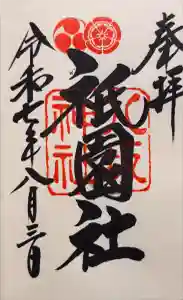 奉拝
八坂神社
祇園社
令和七年八月三日